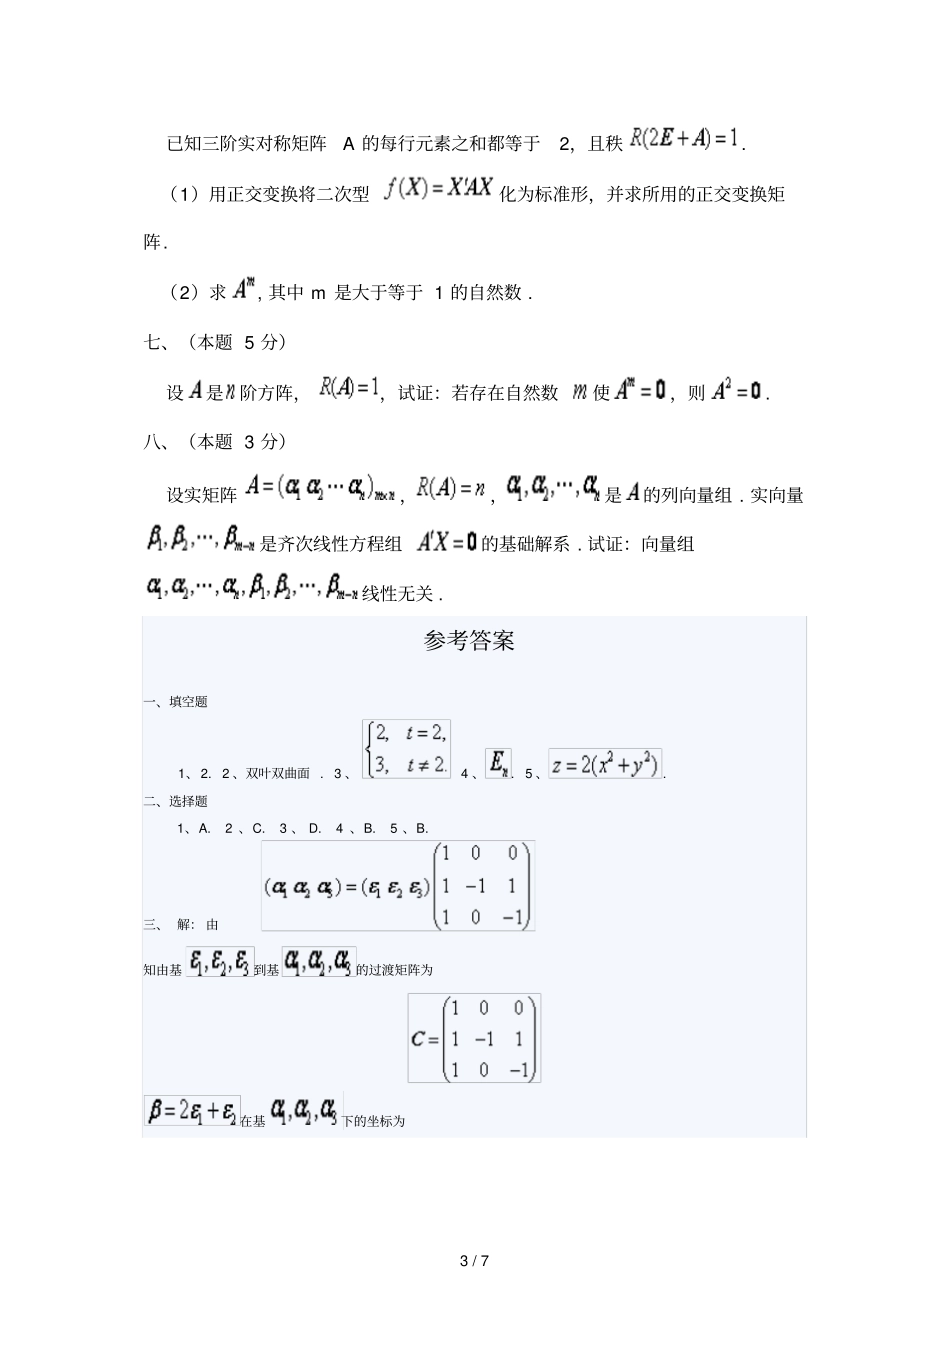 已知三阶实对称矩阵 A 的每行元素之和都等于 2，且秩 R(2E+A)=1.
（1）用正交变换将二次型 f(X)=X'AX 化为标准形，并求所用的正交变换矩
阵.
（2）求 A^m, 其中 m 是大于等于 1 的自然数 .
七、（本题 5 分）
设 A 是 n 阶方阵， R(A)=1，试证：若存在自然数 m 使 A^m=0，则 A^2=0 .
八、（本题 3 分）
设实矩阵 A=(α_1 α_2 ⋯ α_n)_{m×n} , R(A)=n , α_1,α_2,⋯,α_n 是 A 的列向量组 . 实向量
β_1,β_2,⋯,β_{m−n} 是齐次线性方程组 A'X=0 的基础解系 . 试证：向量组
α_1,α_2,⋯,α_n,β_1,β_2,⋯,β_{m−n} 线性无关 .
参考答案
一、填空题
1、2. 2、双叶双曲面 . 3、{2, t=2, 3, t≠2. 4、E_n . 5、z=2(x^2+y^2) .
二、选择题
1、A. 2、C. 3、D. 4、B. 5、B.
三、 解：由 (α_1 α_2 α_3)=(ε_1 ε_2 ε_3)(1 0 0
1 −1 1
1 0 −1)
知由基 ε_1,ε_2,ε_3 到基 α_1,α_2,α_3 的过渡矩阵为
C=(1 0 0
1 −1 1
1 0 −1)
β=2ε_1+ε_2 在基 α_1,α_2,α_3 下的坐标为
3 / 7